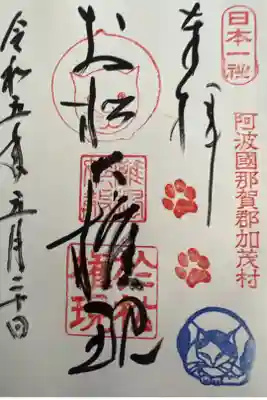 日本一社
阿波國那賀郡加茂村
奉拝
お松大権現
令和五年五月二十日